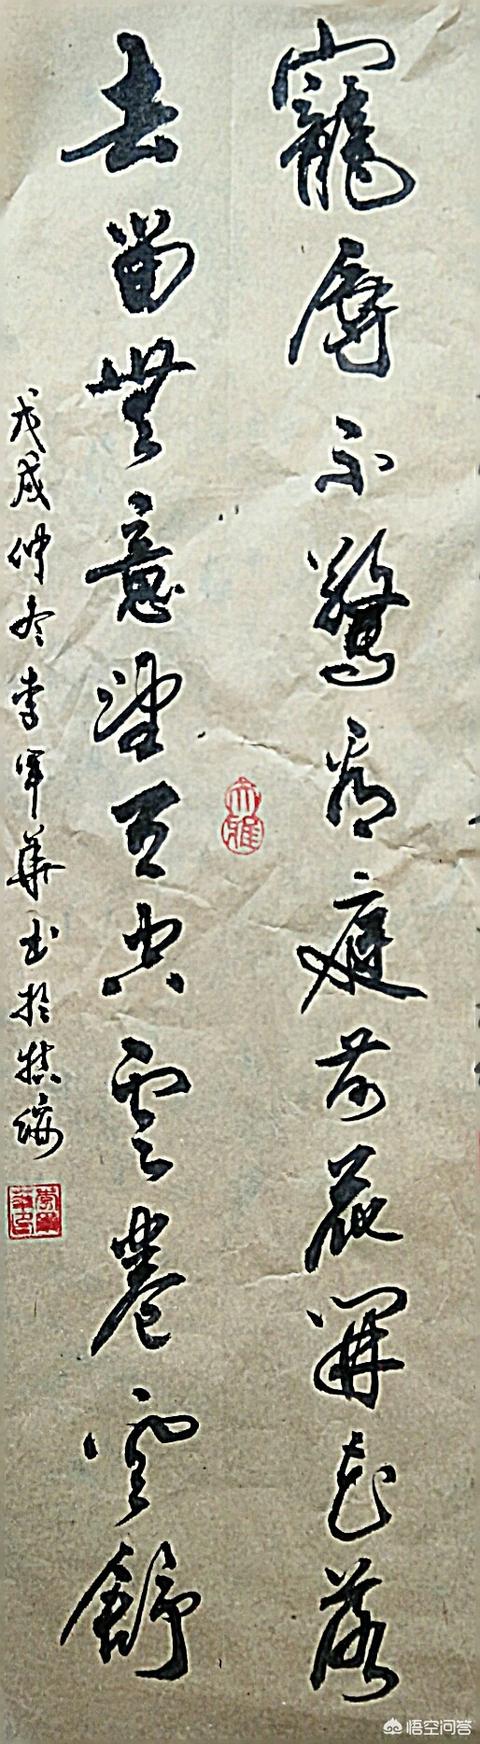 寵辱不驚看庭前花開花落
去留無意望天空雲卷雲舒
戊戌仲冬李軍華书於
大雅
悟空问答